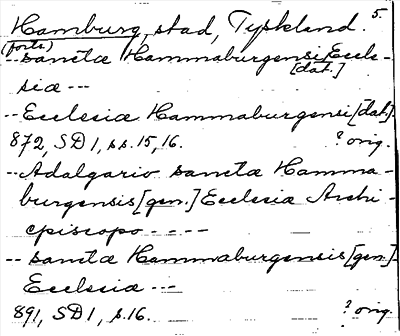 Hamburg, stad, Tyskland. 5.
(forts.)
-- sanctæ Hammaburgensi Eccle-
[dat.]
siæ ---
-- Ecclesiæ Hammaburgensi [dat.]
872, SD 1, s.s. 15, 16. ? orig.
-- Adalgario sanctæ Hamma-
burgensis [gen.] Ecclesiæ Archi-
episcopo - - - -
-- sanctæ Hammaburgensis [gen.]
Ecclesiæ ---
891, SD 1, s. 16. ? orig.